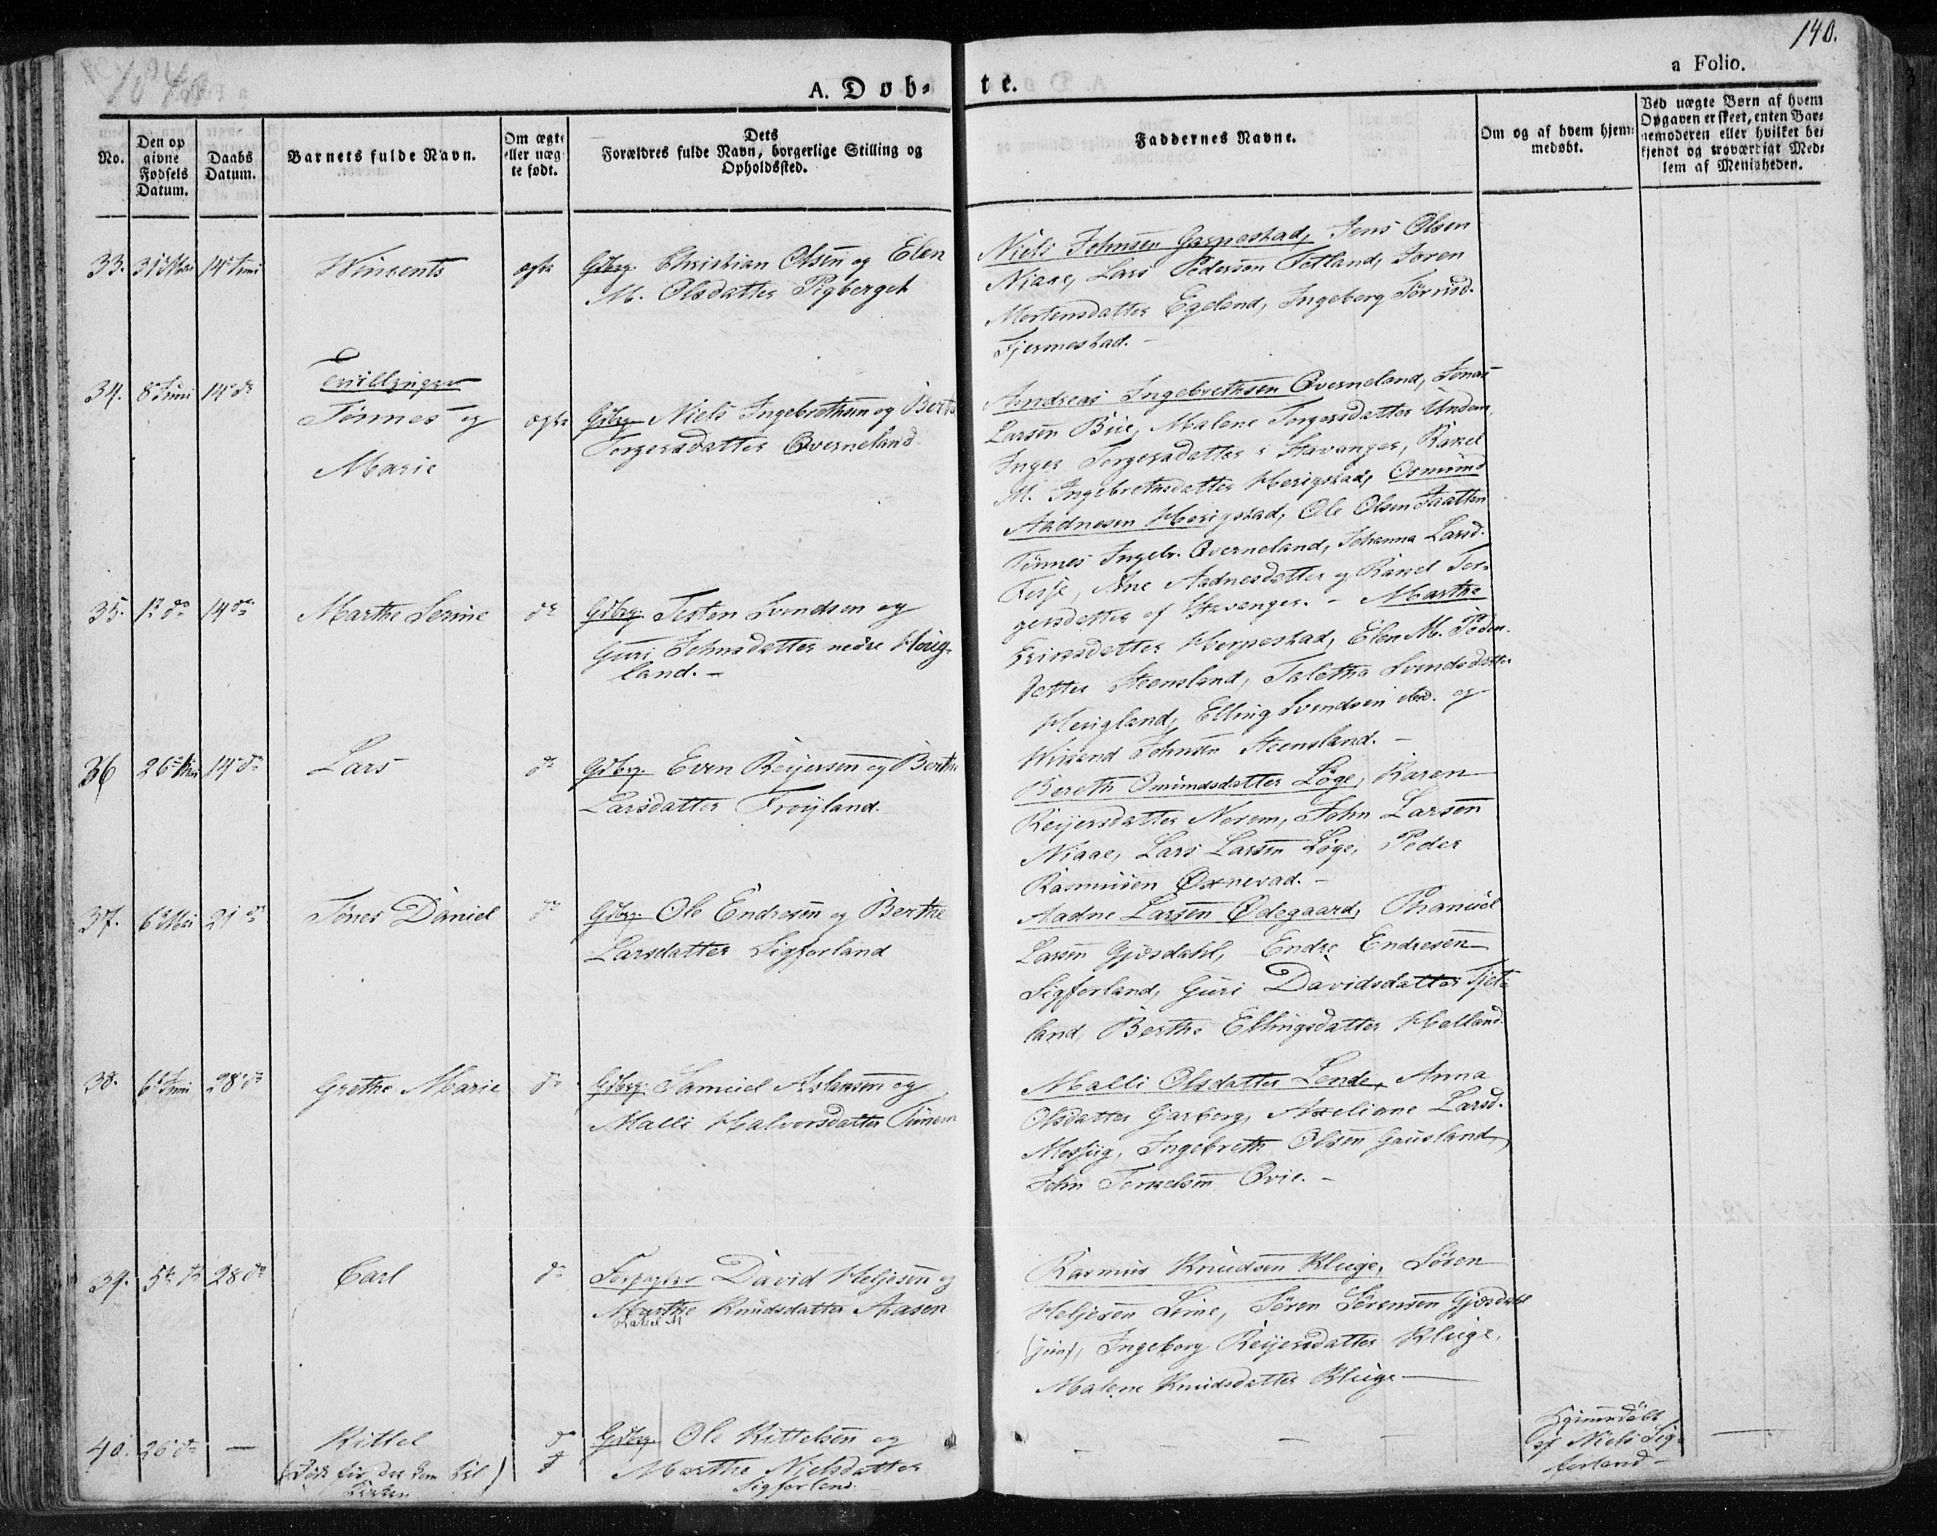 1840
140.
a Folio.
A. Døb- te.
No.
Den op
givne
Fødsels
Datum.
Daabs
Datum.
Barnets fulde Navn.
Om ægte
eller uæg-
te født.
Dets
Forældres fulde Navn, borgerlige Stilling og
Opholdssted.
Faddernes Navne.
Om og af hvem hjem-
medøbt.
Ved uægte Børn af hvem
Opgaven er skeet, enten Bar-
nemoderen eller hvilket be-
kjendt og troværdigt Med-
lem af Menigheden.
33. 14 Juni Wincents ægte Gdbrg. Christian Olsen og Elen
M. Olsdatter Pigberget
Niels Johnsen Gaspestad, Jens Olsen
Niaae, Lars Pedersen Fotland, Soren
Mortensdatter Egeland, Ingeborg
Fjermestad. -
34. 8 Juni 14 do Tvillinger
Tønnes og
Marie
ægte Gdbrg. Niels Ingebrethsen og Berte
Torgersdatter Qverneland
Andreas Ingebrethsen Qverneland, Jonas
Larsen Bue, Malene Torgersdatter
Inger Torgersdatter i Stavanger, Rakel
M. Ingebrethsdatter Herigstad, Osmund
Aadnesen Herigstad, Ole Olsen Jaatten
Tønnes Ingebr. Qverneland, Johanna Larsd.
Ane Aadnesdatter og Rakel Tor-
gersdatter af Stavanger. -
35. 1 do 14 do Marthe Serine do Gdbrg. Tosten Svendsen og
Guri Johnsdatter nedre Herig-
land. -
Marthe
Ericksdatter Herpestad, Elen M. Peders-
datter Steensland, Taletha Svendsdatter
Herigland, Elling Svendsen ibid. og
Johnsen Steensland. -
36 26 Mai 14 do Lars do Gdbrg. Even Reijersen og Berthe
Larsdatter Frøyland.
Bereth Omundsdatter Løge, Karen
Reijersdatter Norem, John Larsen
Niaae, Lars Larsen Løge, Peder
Rasmusen Oxnevad. -
37. 6 Mai 21 do Tønes Daniel do Gdbrg. Ole Endresen og Berthe
Larsdatter Sigforland
Aadne Larsen Ødegaard, Thamuel
Larsen Gjesdahl, Endre Endresen
Sigforland, Guri Davidsdatter Tjet-
land, Berthe Ellingsdatter Helland.
38. 6 Juni 28 do Grethe Marie do Gdbrg. Samuel Aslaksen og
Malli Halvorsdatter Tunem
Malli Olsdatter Lende, Anna
Olsdatter Garborg, Axeliane Larsd.
Mossiig, Ingebreth Olsen Gausland,
John Torkelsen Qvie. -
39. 5 28 do Carl do Forpagter David Heljesen og
Marthe Knudsdatter Aasen
Rakel M
Rasmus Knudsen Kluge, Søren
Heljesen Lime, Søren Sørensen Gjesdahl
(jun), Ingeborg Reijersdatter Kluge,
Malene Knudsdatter Kluge
40. 26 do - Kittel
(Døde før det kom til
Kirken)
do
Gdbrg. Ole Kittelsen og
Marthe Nielsdatter
Sigforland.
- - - -
Hjemmedøbt
af Niels Sig-
forland -